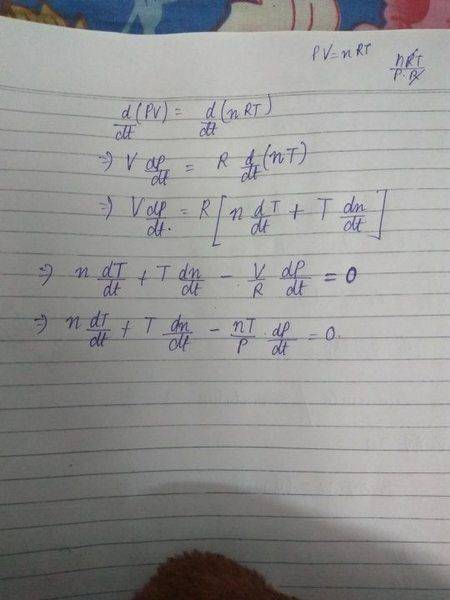 PV = nRT
nRT/P.R
d/dt (PV) = d/dt (nRT)
⇒ V dP/dt = R d/dt (nT)
⇒ V dP/dt. = R [ n dT/dt + T dn/dt ]
⇒ n dT/dt + T dn/dt - V/R dP/dt = 0
⇒ n dT/dt + T dn/dt - nT/P . dP/dt = 0.